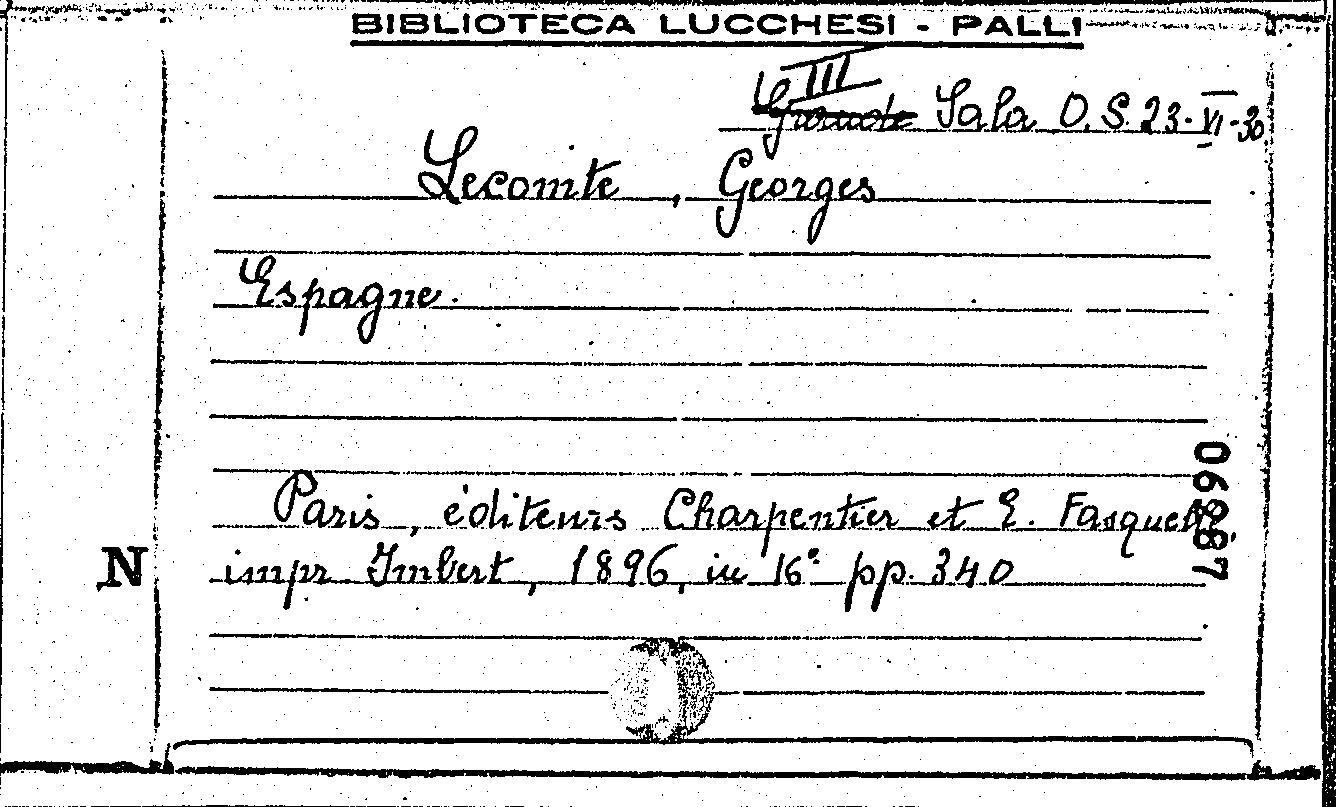 BIBLIOTECA LUCCHESI - PALLI
III Sala O.S. 23-VI-30
Lecomte, Georges
Espagne.
Paris, éditeurs Charpentier et E. Fasquelle,
impr Imbert, 1896, in 16° pp. 340
N
06987